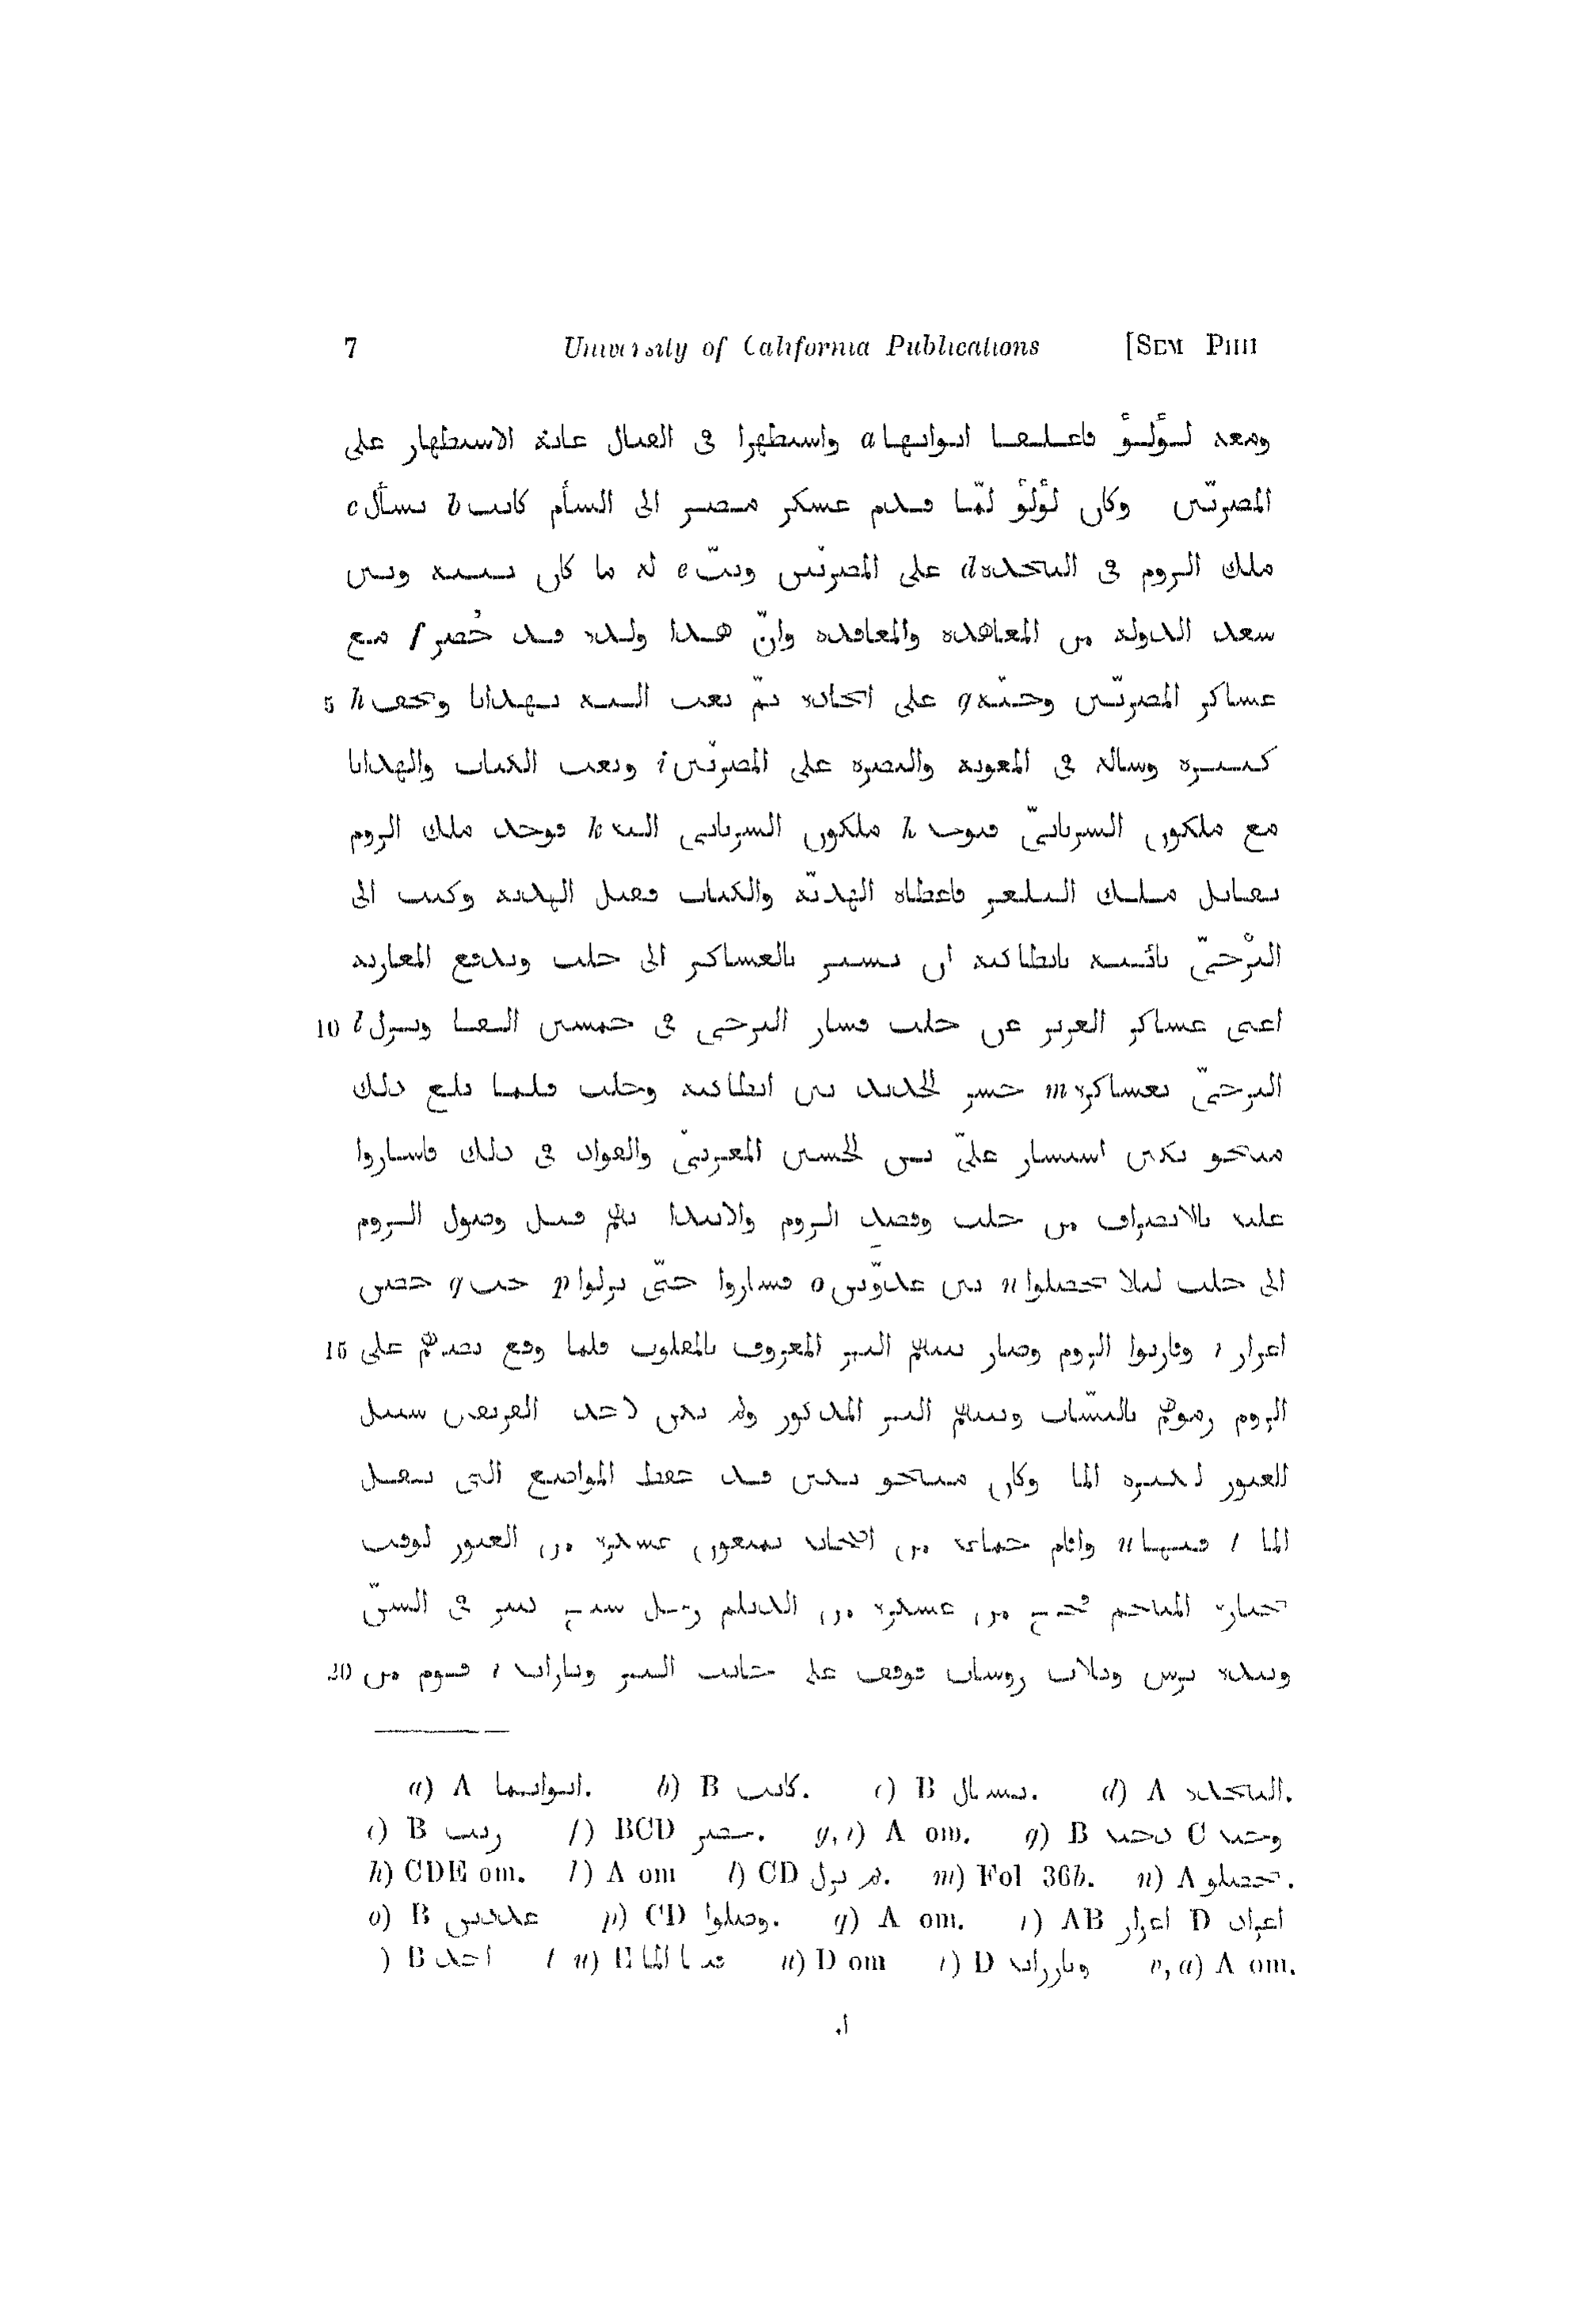 7 University of California Publications [SEM PHIL
ومعه لؤلؤ فاغلقا ابوابها a واستظهرا فى القتال غاية الاستظهار على
المصريّين وكان لؤلؤ لمّا قدم عسكر مصر الى الشأم كاتب b يسأل c
ملك الروم فى النجدة d على المصريّين ومتّ e له ما كان بينه وبين
سعد الدولة من المعاهدة والمعاقدة وانّ هذا ولده قد حُصر f مع
عساكر المصريّين وحثّه g على انجاده ثمّ بعث اليه بهدايا وتحف h 5
كثيرة وساله فى المعونة والنصرة على المصريّين i وبعث الكتاب والهدايا
مع ملكون السريانىّ فتوجه h ملكون السريانى اليه k فوجد ملك الروم
يقاتل ملك البلغر فاعطاه الهديّة والكتاب فقبل الهدية وكتب الى
البُرْجىّ نائبه بانطاكية ان يسير بالعساكر الى حلب ويدفع المغاربة
اعنى عساكر العزيز عن حلب فسار البرجى فى خمسين الفا ونزل l 10
البرجىّ بعساكره m جسر الحديد بين انطاكية وحلب فلما بلغ ذلك
منجو تكين استشار علىّ بن الحسين المغربىّ والقواد فى ذلك فاشاروا
عليه بالانصراف من حلب وقصد الروم والابتدا بهم قبل وصول الروم
الى حلب ليلا تحصلوا n بين عدوّين o فساروا حتّى نزلوا p تحت q حصن
اعزاز r وقاربوا الروم وصار بينهم النهر المعروف بالمقلوب فلما وقع بصرهم على 15
الروم رموهم بالنشّاب وبينهم النهر المذكور ولم يكن لاحد الفريقين سبيل
للعبور لكثرة الما وكان منجو تكين قد حفظ المواضع التى يقل
الما t فيها u واقام جماعة من اصحابه يمنعون عسكره من العبور لوقت
يختاره المنجم فخرج من عسكره من الديلم رجل شيخ كبير فى السنّ
وبيده ترس وثلاث روسات فوقف على جانب النهر وبازائه v قوم من 20
a) A ابوابهما. b) B كاتب. c) B يسال. d) A النجده.
f) BCD حضر. g, i) A om. g) B C وحثه
h) CDE om. k) A om l) CD ثم نزل. m) Fol 36b. n) A تحصلو.
o) B عدوين p) CD وصلوا. q) A om. r) AB اعزاز D اعزاز
) B احد u) D om v) D v, a) A om.